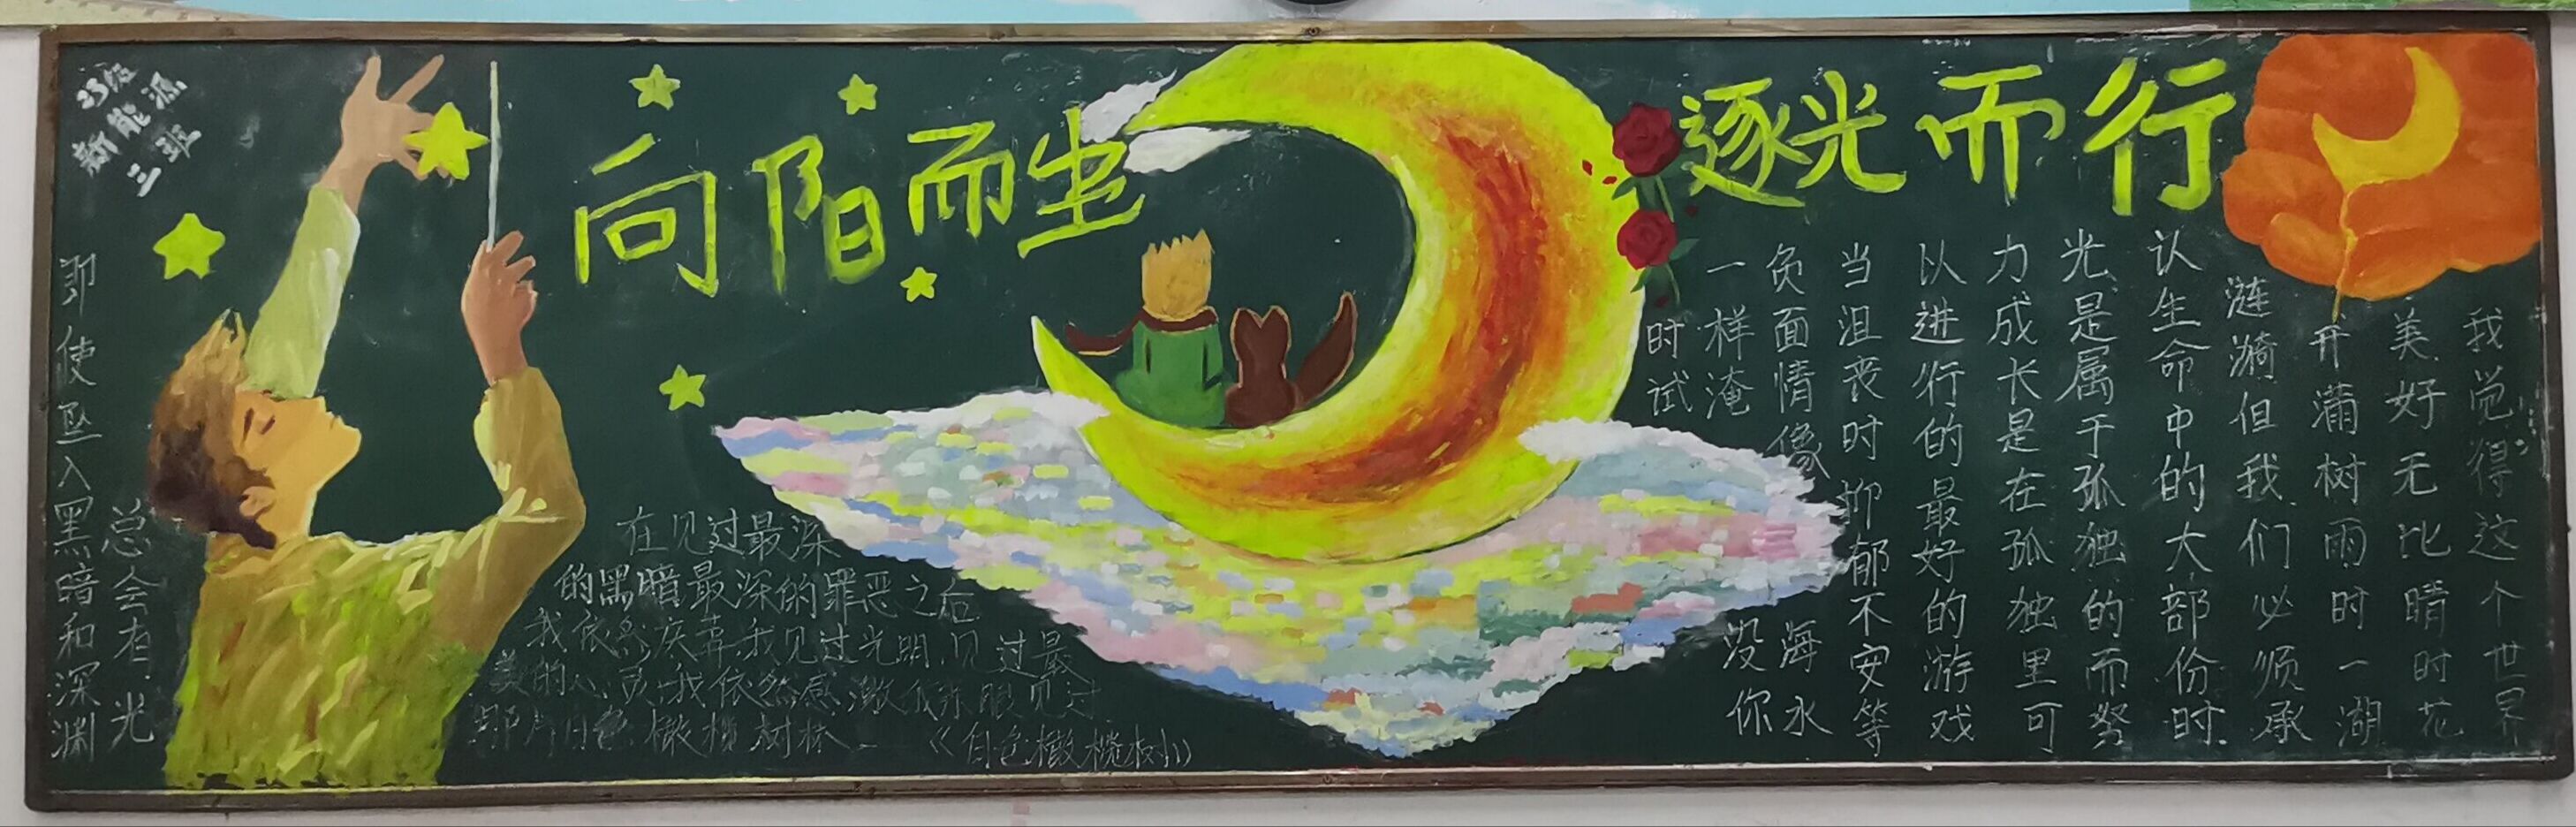 23级
新能源
三班
即使坠入黑暗和深渊
总会有光
向阳而坐
逐光而行
在见过最深
的黑暗最深的罪恶之后
我依然庆幸我见过光明,见过最
美的人、我依然感激我张眼见过
那片白色橄榄树林—《白色橄榄树》
我觉得这个世界
美好无比晴时花
开满树雨时一湖
涟漪但我们必须承
认生命中的大部份时
光是属于孤独的而努
力成长是在孤独里可
以进行的最好的游戏
当沮丧时抑郁不安等
负面情像海水
一样淹没你
时试